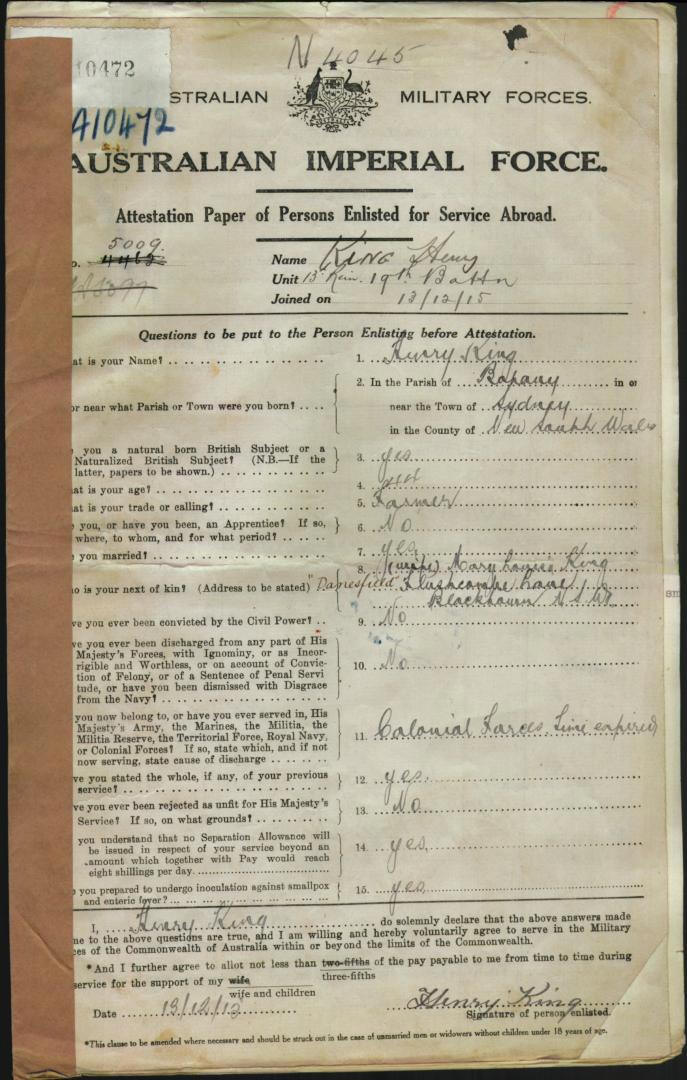 N 4045
10472
A10472
STRALIAN MILITARY FORCES.
AUSTRALIAN IMPERIAL FORCE.
Attestation Paper of Persons Enlisted for Service Abroad.
5009.
o. 4463
Name King Henry
Unit 13th Rein. 19th Battn
Joined on 13/12/15
Questions to be put to the Person Enlisting before Attestation.
at is your Name? 1. Henry King
2. In the Parish of Botany in or
or near what Parish or Town were you born? near the Town of Sydney
in the County of New South Wales
you a natural born British Subject or a
Naturalized British Subject? (N.B.—If the 3. yes
latter, papers to be shown.)
at is your age? 4.
at is your trade or calling? 5. Farmer
you, or have you been, an Apprentice? If so, 6. No
where, to whom, and for what period?
you married? 7. yes
8. (wife) Mary Louisa King
o is your next of kin? (Address to be stated) "Danesfield" Flushcombe Lane
Blacktown N S W
ve you ever been convicted by the Civil Power? 9. No
ve you ever been discharged from any part of His
Majesty's Forces, with Ignominy, or as Incor-
rigible and Worthless, or on account of Convic-
tion of Felony, or of a Sentence of Penal Servi 10. No
tude, or have you been dismissed with Disgrace
from the Navy?
you now belong to, or have you ever served in, His
Majesty's Army, the Marines, the Militia, the
Militia Reserve, the Territorial Force, Royal Navy, 11. Colonial Forces, Time expired
or Colonial Forces? If so, state which, and if not
now serving, state cause of discharge
ve you stated the whole, if any, of your previous 12. yes.
service?
ve you ever been rejected as unfit for His Majesty's 13. No
Service? If so, on what grounds?
you understand that no Separation Allowance will
be issued in respect of your service beyond an 14. yes
amount which together with Pay would reach
eight shillings per day.
you prepared to undergo inoculation against smallpox 15. yes
and enteric fever?
I, Henry King do solemnly declare that the above answers made
me to the above questions are true, and I am willing and hereby voluntarily agree to serve in the Military
es of the Commonwealth of Australia within or beyond the limits of the Commonwealth.
*And I further agree to allot not less than two-fifths of the pay payable to me from time to time during
three-fifths
service for the support of my wife
wife and children
Date 13/12/15 Henry King
Signature of person enlisted.
*This clause to be amended where necessary and should be struck out in the case of unmarried men or widowers without children under 18 years of age.